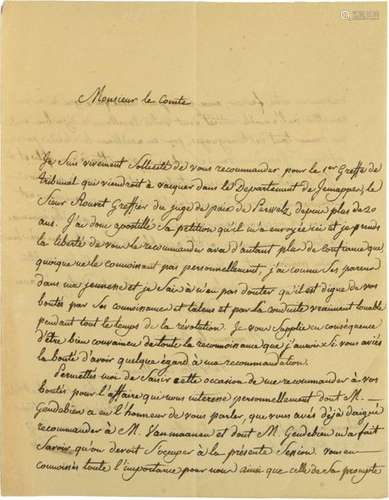 Monsieur le Comte
Je suis vivement sollicité de vous recommander pour le 1er Greffe de
tribunal qui viendroit à vaquer dans le Departement de Jemappes, le
Sieur Greffier du juge de paix de depuis plus de 20
ans. J'ai donc apostillé sa petition qu'il m'a envoyée ici et je prends
la liberté de vous le recommander avec d'autant plus de confiance que
quoique ne le connoissant pas personnellement, j'ai connu ses parens
dans ma jeunesse et je sais à n'en pas douter qu'il est digne de vos
bontés par ses connoissances et talens et par sa conduite vraiment louable
pendant tout le temps de la revolution. Je vous supplie en conséquence
d'être bien convaincu de toute la reconnoissance que j'aurois si vous aviez
la bonté d'avoir quelque égard à ma recommandation.
Permettez moi de saisir cette occasion de me recommander à vos
bontés pour l'affaire qui nous interesse personnellement dont M.
Gendebien a eu l'honneur de vous parler, que vous avés déjà daigné
recommander à M. Vanmaanen et dont M. Gendebien m'a fait
savoir qu'on devoit s'occuper à la presente Session. Vous en
connoissés toute l'importance pour nous ainsi que celle de sa prompte